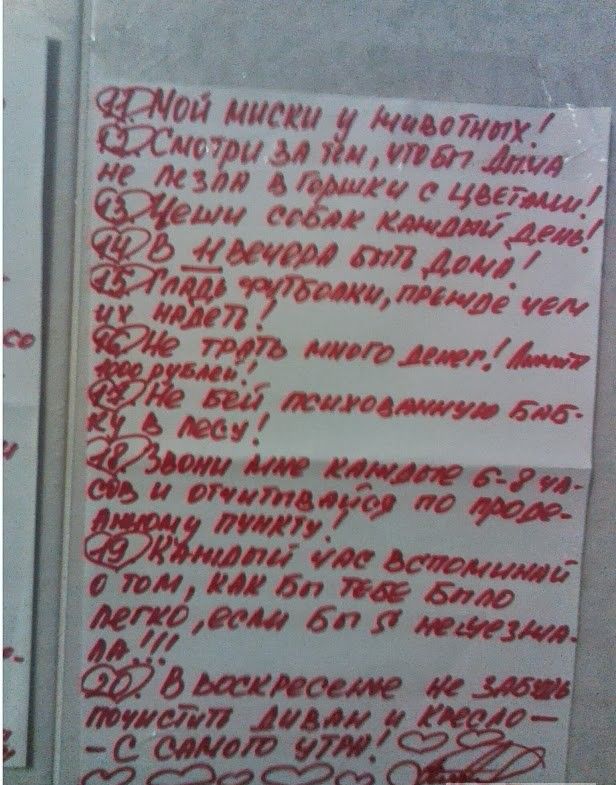 11. Мой миски у животных!
12. Смотри за тем, чтобы Дыма
не лезла в горшки с цветами!
13. Чеши собак каждый день!
14. В 11 вечера быть дома!
15. Гладь футболки, прежде чем
их надеть!
16. Не трать много денег! Лимит
1000 рублей!
17. Не бей психованную баб-
ку в лесу!
18. Звони мне каждые 6-8 ча-
сов и отчитывайся по проде-
анному пункту!
19. Каждый час вспоминай
о том, как бы тебе было
легко, если бы я не уезжа-
ла!!!
20. В воскресение не забудь
почистить диван и кресло —
— с самого утра!
со